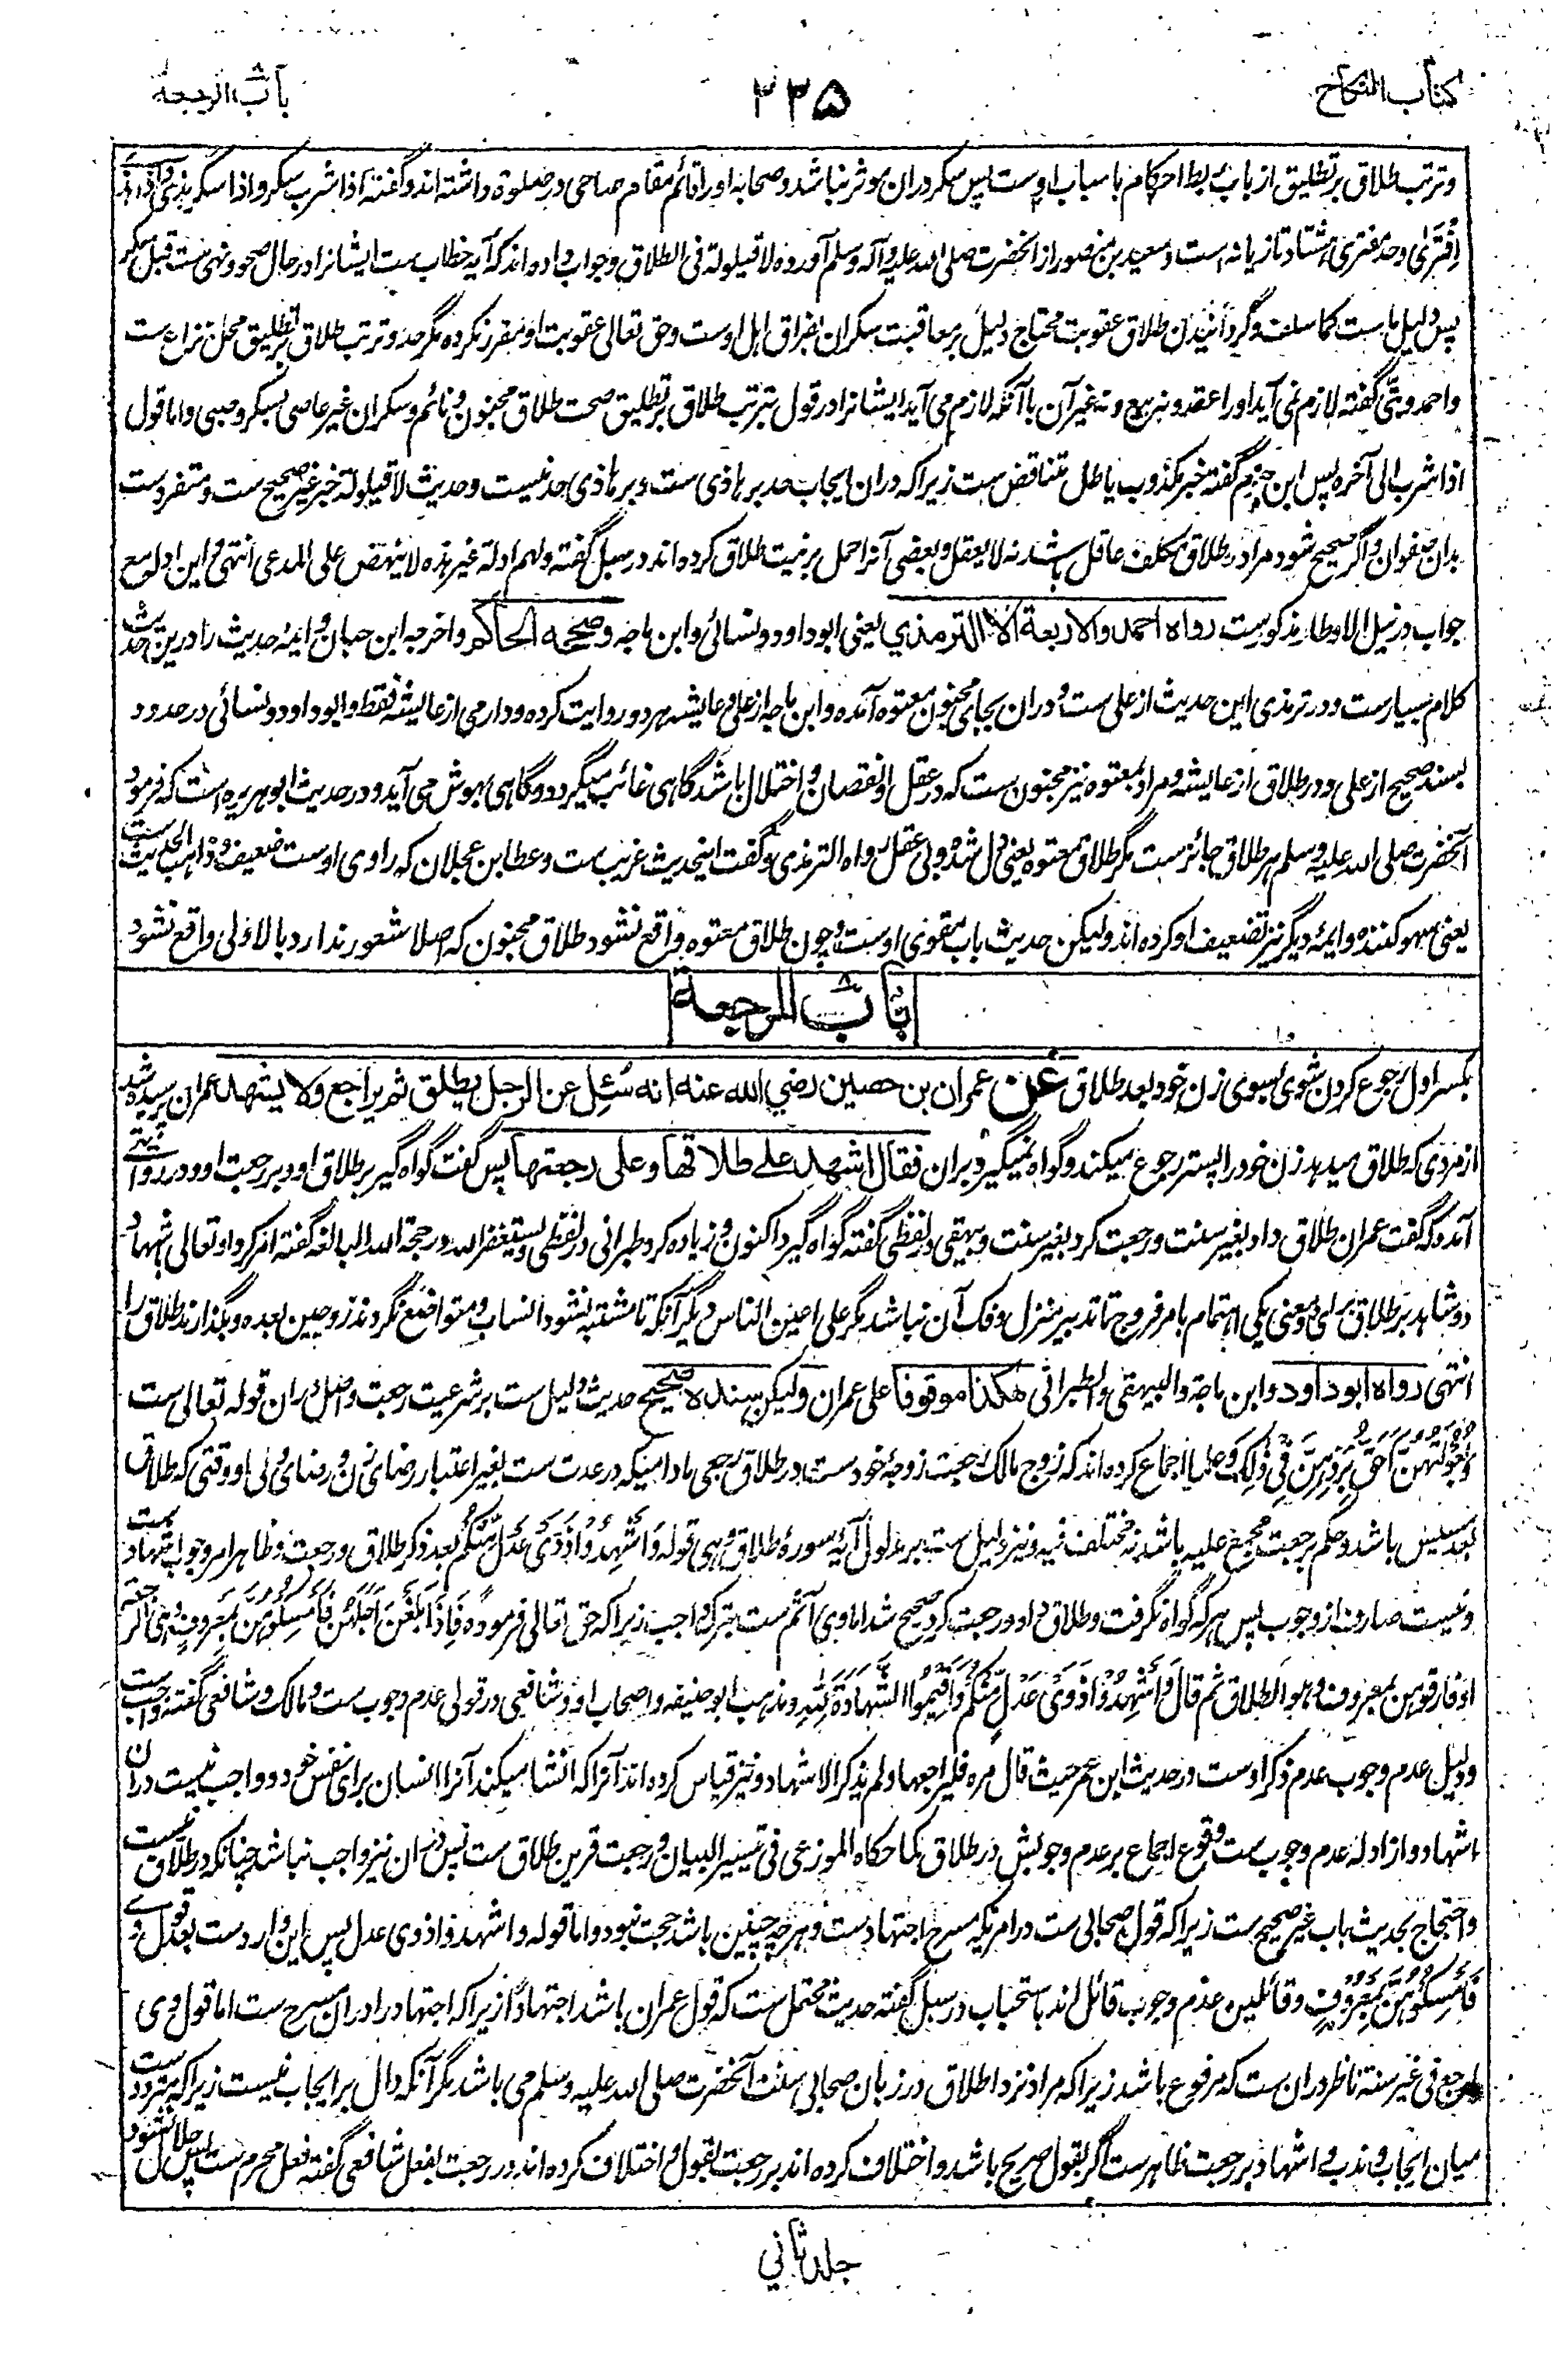 کتاب النکاح
۲۳۵
باب الرجعة
وترتب طلاق بر تطلیق از باب ربط احکام باسباب اوست پس سکر دران موثر نباشد و صحابه او را قائم مقام صاحی در صلوة داشته اند و گفته اذا شرب سکر و اذا سکر هذی و اذا هذی
افتری و حد مفتری هشتاد تازیانه است و سعید بن منصور از آنحضرت صلی الله علیه و آله و سلم آورده لا قیلولة فی الطلاق و جواب داده اند که آیه خطاب ست ایشانرا در حال صحو و نهی ست قبل سکر
پس دلیل ماست کما سلف و گردانیدن طلاق عقوبت محتاج دلیل بر معاقبت سکران بفراق اهل اوست و حق تعالی عقوبت او مقرر نکرده مگر حد و ترتب طلاق بر تطلیق محل نزاع ست
و احمد و بتی گفته لازم نمی آید او را عقد و نه بیع و نه غیر آن با آنکه لازم می آید ایشانرا در قول بترتب طلاق بر تطلیق صحت طلاق مجنون و نائم و سکران غیر عاصی بسکر و صبی و اما قول
اذا شرب الی آخره پس ابن حزم گفته خبر مکذوب باطل متناقض ست زیراکه دران ایجاب حد بر هاذی ست و بر هاذی حد نیست و حدیث لا قیلولة خبر غیر صحیح ست و متفردست
بدان صفوان و اگر صحیح شود مراد طلاق مکلف عاقل باشد نه لا یعقل و بعضی آنرا حمل بر نیت طلاق کرده اند در سبل گفته و لهم ادلة غیر هذه لا ینهض علی المدعی انتهی و این ادله مع
جواب در نیل الاوطار مذکورست رواه احمد والاربعة الا الترمذي یعنی ابوداود و نسائی و ابن ماجه وصححه الحاکم و اخرجه ابن حبان و ایمه حدیث را درین حدیث
کلام بسیارست و در ترمذی این حدیث از علی ست و دران بجای مجنون معتوه آمده و ابن ماجه از علی و عایشه هر دو روایت کرده و دارمی از عایشه فقط و ابوداود و نسائی در حدود
بسند صحیح از علی و در طلاق از عایشه و مراد بمعتوه نیز مجنون ست که در عقل او نقصان و اختلال باشد گاهی غائب میگردد و گاهی بهوش می آید و در حدیث ابوهریره است که فرمود
آنحضرت صلی الله علیه و سلم هر طلاق جائزست مگر طلاق معتوه یعنی دل شده و بی عقل رواه الترمذی و گفت اینحدیث غریب ست و عطا بن عجلان که راوی اوست ضعیف و ذاهب الحدیث ست
یعنی سهو کننده و ایمهٔ دیگر نیز تضعیف او کرده اند ولیکن حدیث باب مقوی اوست و چون طلاق معتوه واقع نشود طلاق مجنون که اصلا شعور ندارد بالاولی واقع نشود
باب الرجعة
بکسر اول رجوع کردن شوی بسوی زن خود بعد طلاق عن عمران بن حصین رضي الله عنه انه سُئِل عن الرجل یطلق ثم یراجع ولا یشهد عمران پرسیده شد
از مردی که طلاق میدهد زن خود را پستر رجوع میکند و گواه نمیگیرد بران فقال اشهد علی طلاقها وعلی رجعتها پس گفت گواه گیر بر طلاق او و بر رجعت او و در روایتے
آمده که گفت عمران طلاق داد بغیر سنت و رجعت کرد بغیر سنت و بیهقی در لفظی گفته گواه گیرد اکنون و زیاده کرد طبرانی در لفظی و یستغفر الله و در حجة الله البالغه گفته امر کرد او تعالی باشهاد
دو شاهد بر طلاق برای دو معنی یکی اهتمام بامر فروج تا تدبیر منزل و فک آن نباشد مگر علی اعین الناس دیگر آنکه تا مشتبه نشود انساب و متواضع نگردند زوجین بعده و بگذارند طلاق را
انتهی رواه ابو داود و ابن ماجه والبیهقی والطبرانی هکذا موقوفا علی عمران ولیکن سنده صحیح حدیث دلیل ست بر شرعیت رجعت و اصل دران قوله تعالی ست
وَبُعُولَتُهُنَّ أَحَقُّ بِرَدِّهِنَّ فِي ذَٰلِكَ و علما اجماع کرده اند که زوج مالک رجعت زوجهٔ خودست در طلاق رجعی مادامیکه در عدت ست بغیر اعتبار رضای زن و رضای ولی او وقتی که طلاق
بعد مسیس باشد و حکم رجعت مجمع علیه باشد نه مختلف فیه و نیز دلیل ست بر مدلول آیهٔ سورهٔ طلاق و هی قوله وَأَشْهِدُوا ذَوَيْ عَدْلٍ مِّنكُمْ بعد ذکر طلاق و رجعت و ظاهر امر وجوب اشهاد ست
و نیست صارف از وجوب پس هر که گواه نگرفت و طلاق داد و رجعت کرد صحیح شد اما وی آثم ست بترک واجب زیراکه حق تعالی فرموده فَإِذَا بَلَغْنَ أَجَلَهُنَّ فَأَمْسِكُوهُنَّ بِمَعْرُوفٍ و هی الرجعة
او فارقوهن بمعروف و هو الطلاق ثم قال وَأَشْهِدُوا ذَوَيْ عَدْلٍ مِّنكُمْ وَأَقِيمُوا الشَّهَادَةَ لِلَّهِ و مذهب ابو حنیفه و اصحاب او و شافعی در قولی عدم وجوب ست و مالک و شافعی گفته واجب ست
و دلیل عدم وجوب عدم ذکر اوست در حدیث ابن عمر حیث قال مره فلیراجعها و لم یذکر الاشهاد و نیز قیاس کرده اند آنرا که انشا میکند آنرا انسان برای نفس خود و واجب نیست دران
اشهاد و از ادله عدم وجوب ست وقوع اجماع بر عدم وجوبش در طلاق کما حکاه الموزعی فی تیسیر البیان و رجعت قرین طلاق ست پس دران نیز واجب نباشد چنانکه در طلاق نیست
و احتجاج بحدیث باب غیر صحیح ست زیراکه قول صحابی ست در امریکه مسرح اجتهادست و هرچه چنین باشد حجت نبود و اما قوله و اشهدوا ذوی عدل پس این واردست بعد قولے
فَأَمْسِكُوهُنَّ بِمَعْرُوفٍ و قائلین عدم وجوب قائل اند باستحباب در سبل گفته حدیث محتمل ست که قول عمران باشد اجتهاداً زیراکه اجتهاد را دران مسرح ست اما قول وی
ارجع فی غیر سنة ناظر دران ست که مرفوع باشد زیراکه مراد نزد اطلاق در زبان صحابی سنت آنحضرت صلی الله علیه و سلم می باشد مگر آنکه دال بر ایجاب نیست زیراکه متردد ست
میان ایجاب و ندب و اشهاد بر رجعت ظاهرست اگر بقول صریح باشد و اختلاف کرده اند بر رجعت بقول و اختلاف کرده اند در رجعت بفعل شافعی گفته فعل محرم ست پس حلال نشود
جلد ثاني